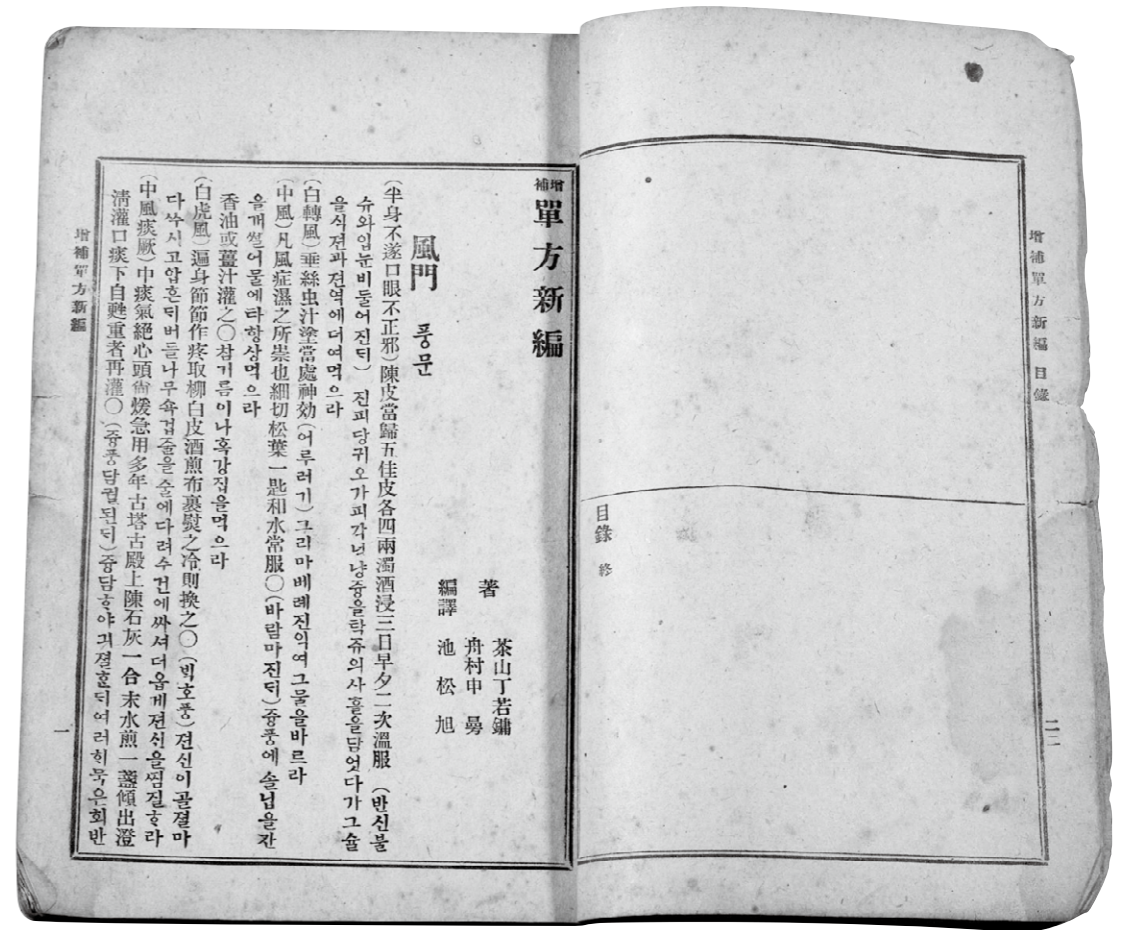 增補單方新編 目錄
二二
目錄 終
增補 單方新編
著 茶山丁若鏞
舟村申曼
編譯 池松旭
風門 풍문
(半身不遂口眼不正邪)陳皮當歸五佳皮各四兩濁酒浸三日早夕二次溫服 (반신불
슈와입눈비둘어진듸) 진피당귀오가피각넉냥즁을탁쥬의사흘을담엇다가그슐
을식젼과젼역에더여먹으라
(白轉風)垂絲虫汁塗當處神効(어루러기)그리마베레진익여그물을바르라
(中風)凡風症濕之所祟也細切松葉一匙和水常服○(바람마진듸)즁풍에솔닙을간
을개썰어물에타항상먹으라
香油或薑汁灌之○참기름이나혹강집을먹으라
(白虎風)遍身節節作疼取柳白皮酒煎布裹熨之冷則換之○(빅호풍)젼신이골졀마
다쑤시고압흔듸버들나무속겁줄을술에다려수건에싸셔더웁게젼신을찜질ᄒᆞ라
(中風痰厥)中痰氣絕心頭尙煖急用多年古塔古殿上陳石灰一合末水煎一盞傾出澄
淸灌口痰下自甦重者再灌○(즁풍담궐된듸)즁담ᄒᆞ야긔졀ᄒᆞᆫ듸여러ᄒᆡ묵은회반
增補單方新編
一